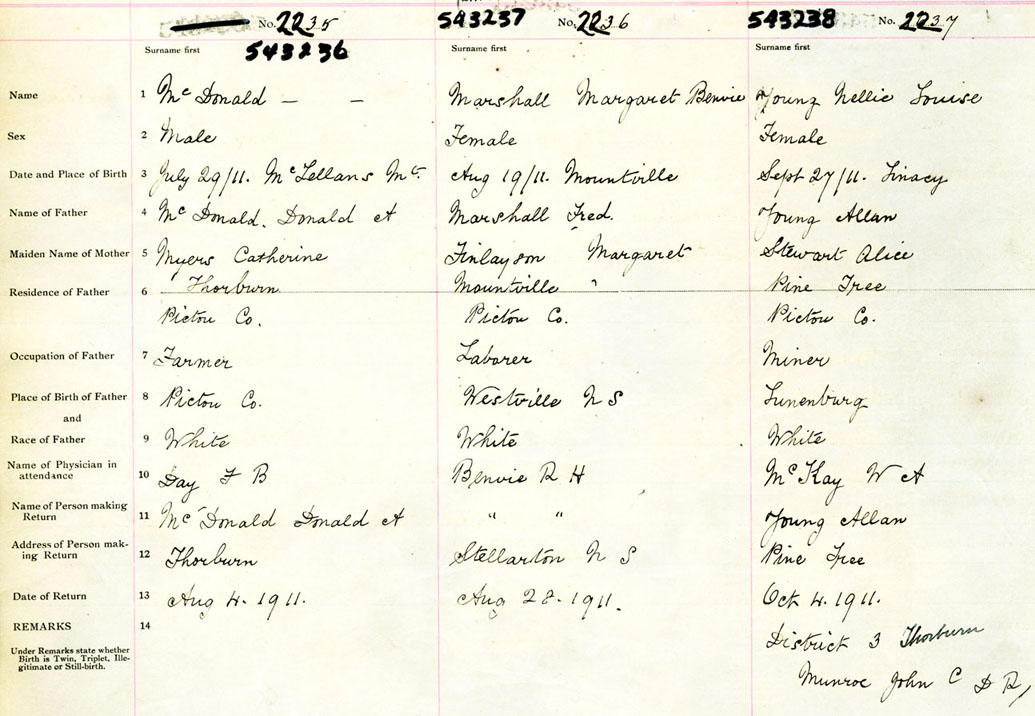 No. 2235 543237 No. 2236 543238 No. 2237
Surname first 543236 Surname first Surname first
Name 1 Mc Donald — — Marshall Margaret Benvie Young Nellie Louise
Sex 2 Male Female Female
Date and Place of Birth 3 July 29/11. McLellans Mt. Aug 19/11. Mountville Sept 27/11. Linacy
Name of Father 4 Mc Donald, Donald A Marshall Fred. Young Allan
Maiden Name of Mother 5 Myers Catherine Finlayson Margaret Stewart Alice
Residence of Father 6 Thorburn Mountville Pine Tree
Pictou Co. Pictou Co. Pictou Co.
Occupation of Father 7 Farmer Laborer Miner
Place of Birth of Father 8 Pictou Co. Westville N S Lunenburg
and
Race of Father 9 White White White
Name of Physician in
attendance 10 Day F B Benvie R H McKay W A
Name of Person making
Return 11 Mc Donald Donald A " " Young Allan
Address of Person mak-
ing Return 12 Thorburn Stellarton N S Pine Tree
Date of Return 13 Aug 4. 1911. Aug 28. 1911. Oct 4. 1911.
REMARKS 14
District 3 Thorburn
Under Remarks state whether
Birth is Twin, Triplet, Ille-
gitimate or Still-birth.
Munroe John C D R